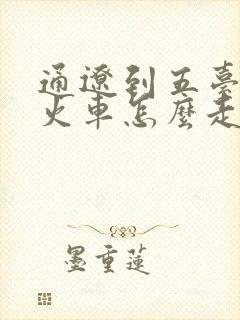 通遼到五臺
火車怎麼走
墨重蓮